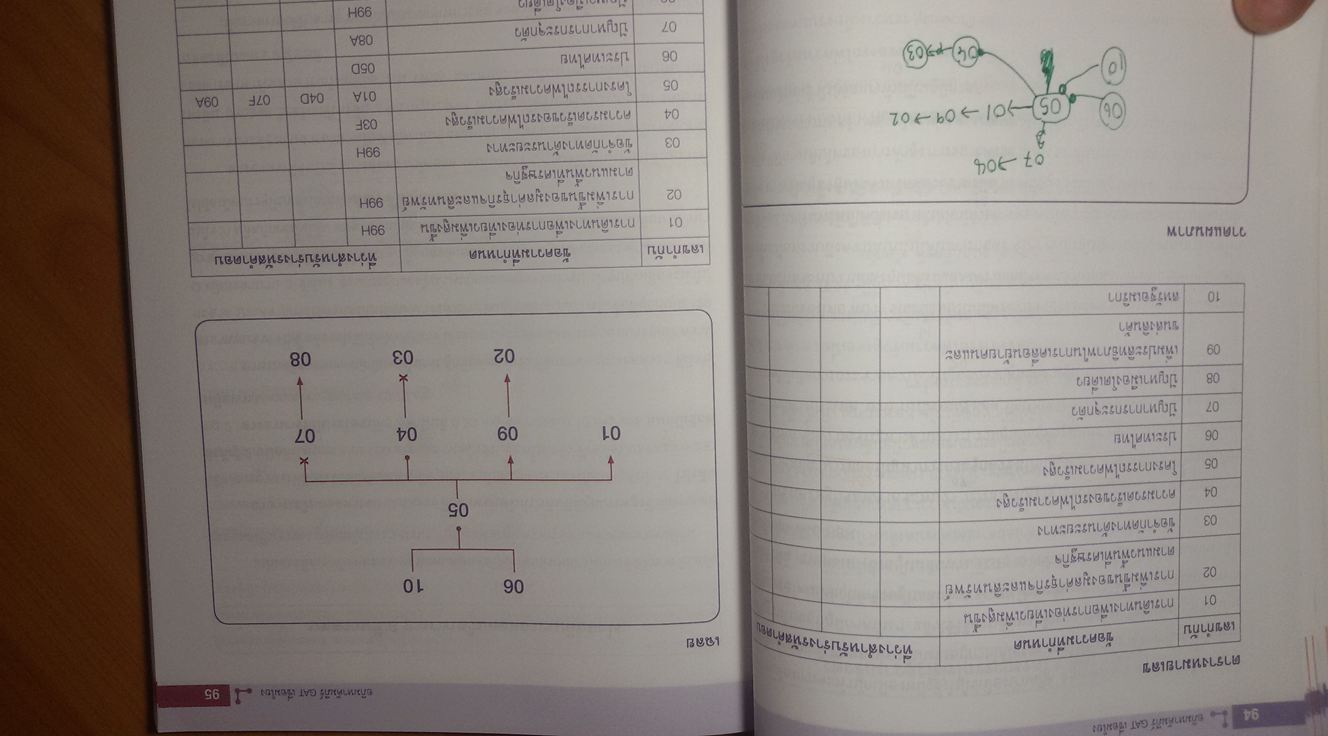 94
อภิมหาคัมภีร์ GAT เชื่อมโยง
ตารางหมายเลข
เลขกำกับ ข้อความที่กำหนด ที่ว่างสำหรับร่างรหัสคำตอบ
01 การเดินทางเพื่อการท่องเที่ยวเพิ่มสูงขึ้น
02 การเพิ่มขึ้นของมูลค่าธุรกิจและสินทรัพย์
ตามแนวพื้นที่เศรษฐกิจ
03 ข้อจำกัดทางด้านระยะทาง
04 ความรวดเร็วของรถไฟความเร็วสูง
05 โครงการรถไฟความเร็วสูง
06 ประเทศไทย
07 ปัญหาการกระจุกตัว
08 ปัญหาเมืองโตเดี่ยว
09 เพิ่มประสิทธิภาพในการเคลื่อนย้ายคนและ
ขนส่งสินค้า
10 สหรัฐอเมริกา
วาดแผนภาพ
07 → 08
06 05 → 01 → 09 → 02
10 04 03
อภิมหาคัมภีร์ GAT เชื่อมโยง
95
เฉลย
06 10
05
01 09 04 07
02 03 08
เลขกำกับ ข้อความที่กำหนด ที่ว่างสำหรับร่างรหัสคำตอบ
01 การเดินทางเพื่อการท่องเที่ยวเพิ่มสูงขึ้น 99H
02 การเพิ่มขึ้นของมูลค่าธุรกิจและสินทรัพย์ 99H
ตามแนวพื้นที่เศรษฐกิจ
03 ข้อจำกัดทางด้านระยะทาง 99H
04 ความรวดเร็วของรถไฟความเร็วสูง 03F
05 โครงการรถไฟความเร็วสูง 01A 04D 07F 09A
06 ประเทศไทย 05D
07 ปัญหาการกระจุกตัว 08A
08 ปัญหาเมืองโตเดี่ยว 99H